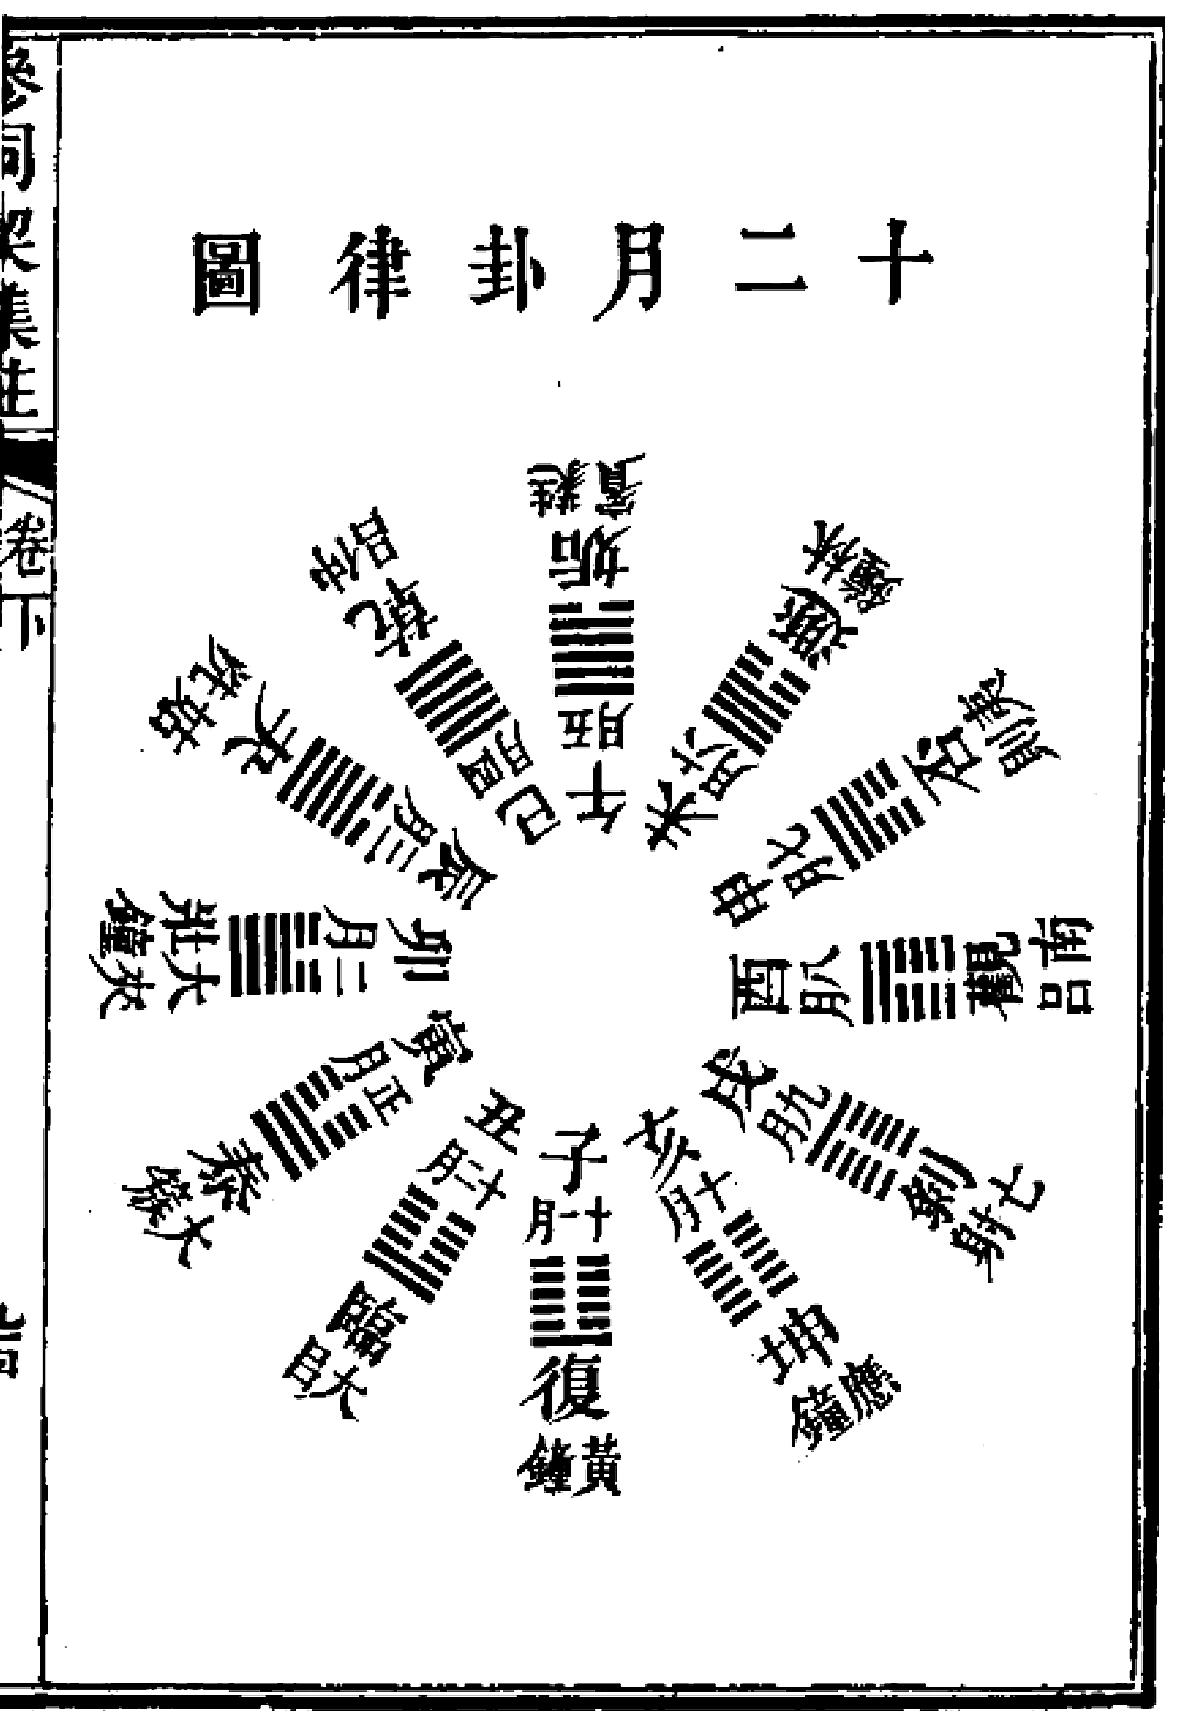 十二月卦律圖
子
十一月
復
黃鐘
丑
十二月
臨
大呂
寅
正月
泰
大簇
卯
二月
大壯
夾鐘
辰
三月
夬
姑洗
巳
四月
乾
仲呂
午
五月
姤
蕤賓
未
六月
遯
林鐘
申
七月
否
夷則
酉
八月
觀
南呂
戌
九月
剝
亡射
亥
十月
坤
應鐘
參同契集注
卷下